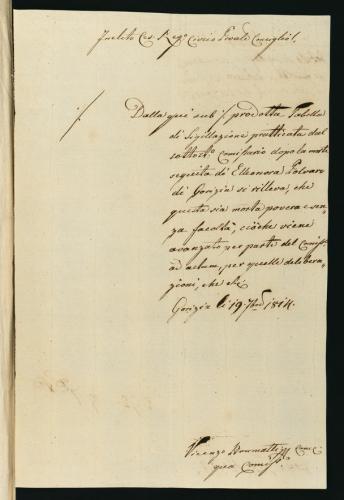 Inclito Ces. Reg.o Civico Provle Consiglio!
Dalla quì sub ·/. prodotta Tabella
di Sigillazione pratticata dal
sottoscto Comissario dopo la morte
seguita di Elleonora Polvaro
di Gorizia si rilleva, che
questa sia morta povera e sen-
za facoltà, ciòche viene
avanzato per parte del Comiss.
ad actum, per quelle delibera-
zioni, che che
Gorizia li 19. 7bre 1814.
Vicenzo
qua Comiss.